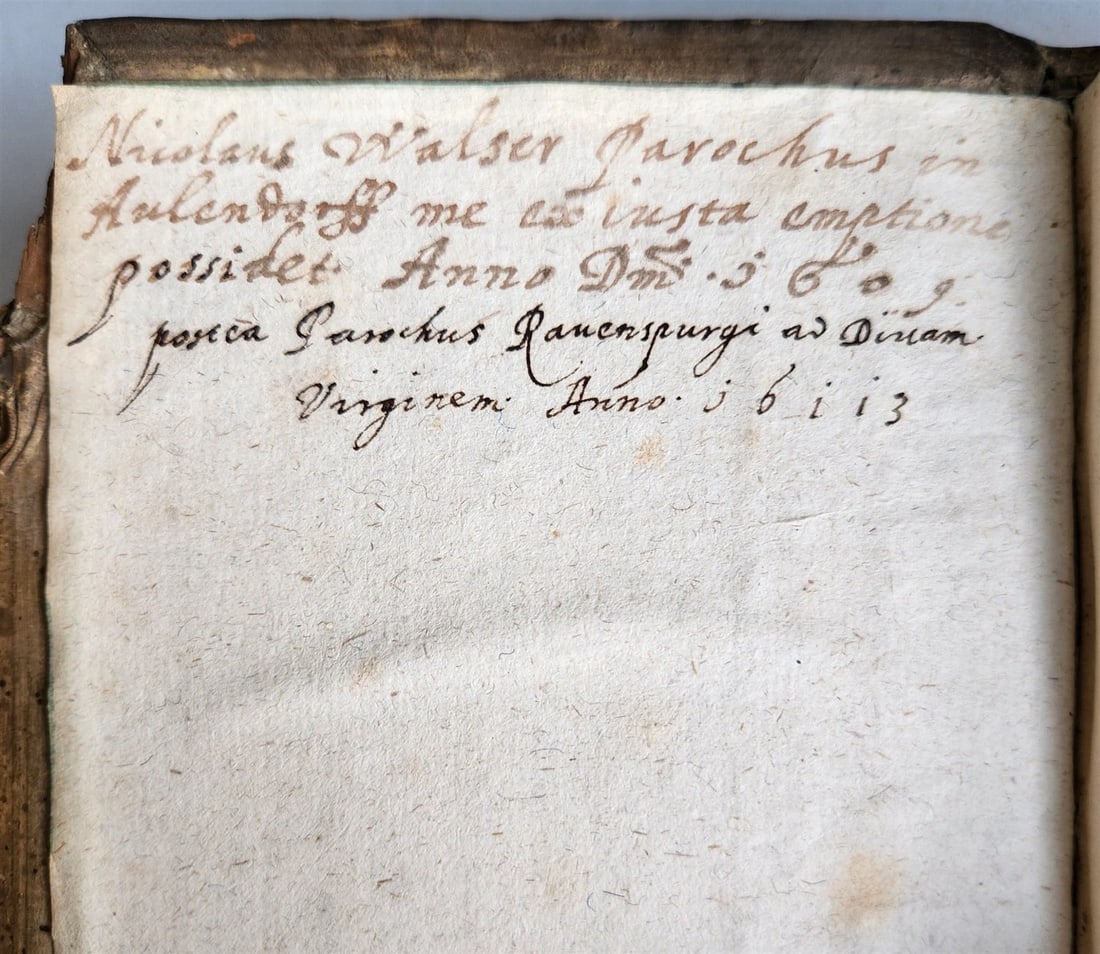 Nicolaus Walser Parochus in
Aulendorff me ex iusta emptione
possidet. Anno Dm̃j. 1609.
postea Parochus Ravenspurgi ad Divam
Virginem. Anno. 16113